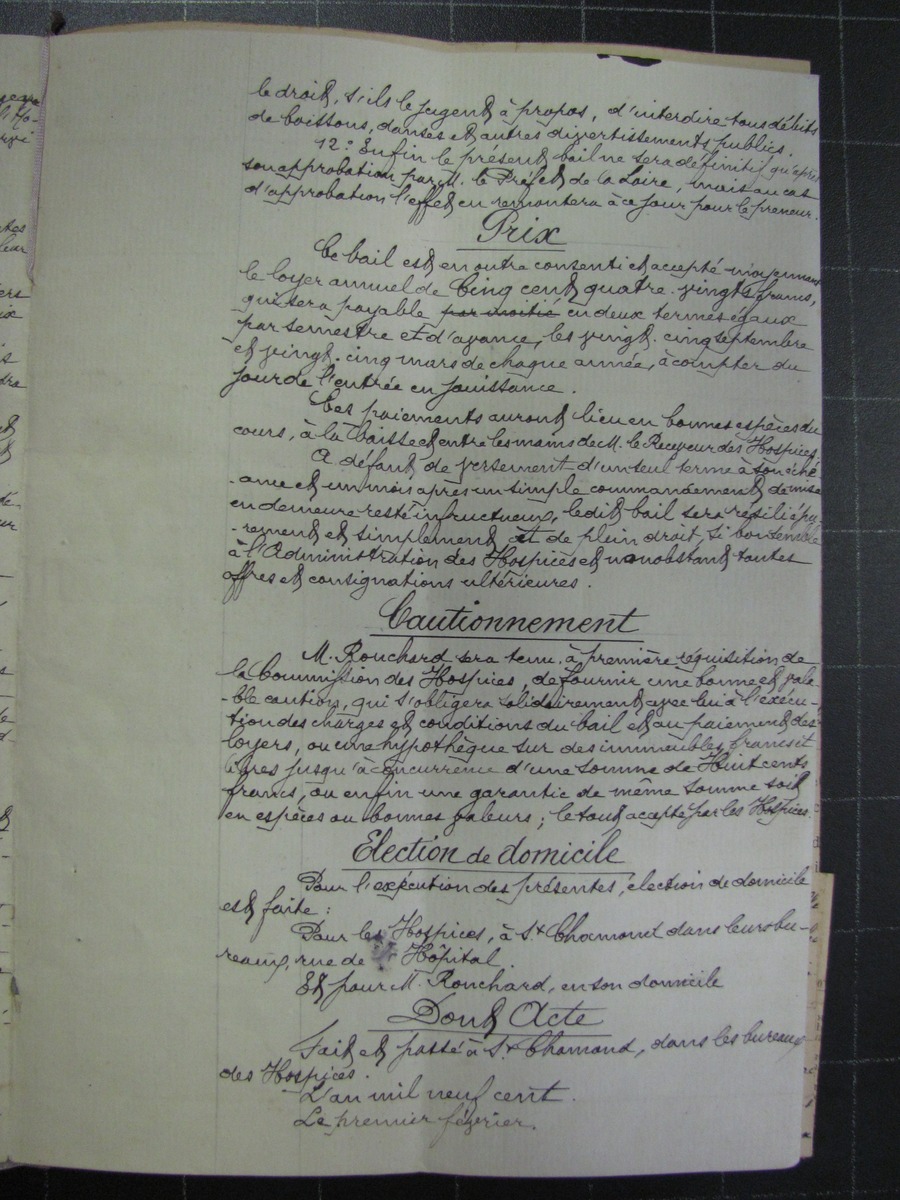 le droit, s'ils le jugent à propos, d'interdire tous débits
de boissons, danses et autres divertissements publics.
12.° Enfin le présent bail ne sera définitif qu'après
son approbation par M. le Préfet de la Loire, mais au cas
d'approbation l'effet en remontera à ce jour pour le preneur.
Prix
Ce bail est en outre consenti et accepté moyennant
le loyer annuel de Cinq cent quatre-vingts francs,
qui sera payable par moitié en deux termes égaux
par semestre et d'avance, les vingt-cinq septembre
et vingt-cinq mars de chaque année, à compter du
jour de l'entrée en jouissance.
Ces paiements auront lieu en bonnes espèces du
cours, à la Caisse et entre les mains de M. le Receveur des Hospices.
A défaut de versement d'un seul terme à son éché
-ance et un mois après un simple commandement de mise
en demeure resté infructueux, ledit bail sera résilié pu-
-rement et simplement et de plein droit, si bon semble
à l'Administration des Hospices et nonobstant toutes
offres et consignations ultérieures.
Cautionnement
M. Ronchard sera tenu, à première réquisition de
la Commission des Hospices, de fournir une bonne et vala-
-ble caution, qui s'obligera solidairement avec lui à l'exécu-
-tion des charges et conditions du bail et au paiement des
loyers, ou une hypothèque sur des immeubles francs et
libres jusqu'à concurrence d'une somme de Huit cents
francs, ou enfin une garantie de même somme soit
en espèces ou bonnes valeurs; le tout accepté par les Hospices.
Election de domicile
Pour l'exécution des présentes, élection de domicile
est faite:
Pour les Hospices, à St Chamond dans leurs bu-
reaux, rue de Hôpital.
Et pour M. Ronchard, en son domicile
Dont Acte
Fait et passé à St Chamond, dans les bureaux
des Hospices.
L'an mil neuf cent.
Le premier février.